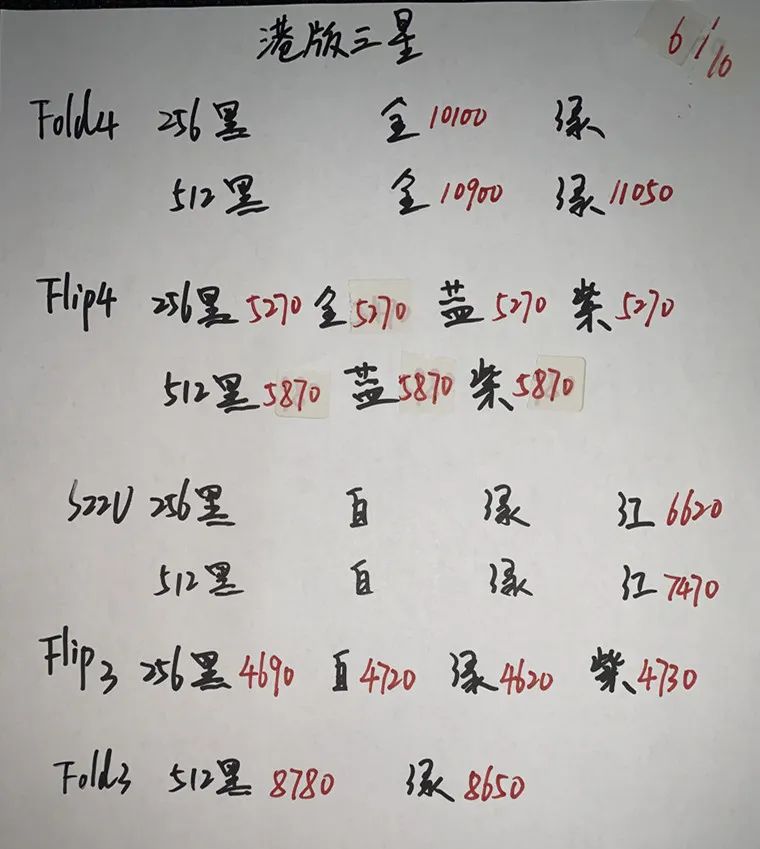 港版三星 6/10
Fold4 256黑 金10100 绿
512黑 金10900 绿11050
Flip4 256黑5270 金5270 蓝5270 紫5270
512黑5870 蓝5870 紫5870
S22U 256黑 白 绿 红6620
512黑 白 绿 红7470
Flip3 256黑4690 白4720 绿4620 紫4730
Fold3 512黑8780 绿8650